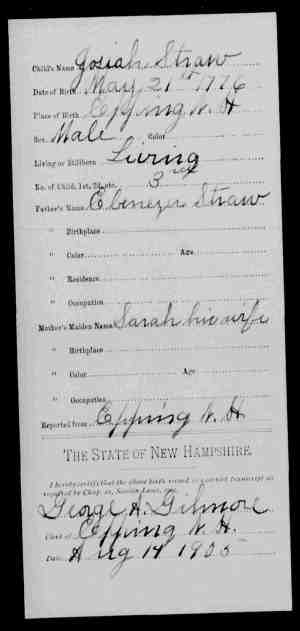 Child's Name Josiah Straw
Date of Birth May 21st 1776
Place of Birth Epping N. H
Sex Male Color
Living or Stillborn Living
No. of Child, 1st, 2d, etc. 3rd
Father's Name Ebenezer Straw
" Birthplace
" Color Age
" Residence
" Occupation
Mother's Maiden Name Sarah his wife
" Birthplace
" Color Age
" Occupation
Reported from Epping N. H
THE STATE OF NEW HAMPSHIRE.
I hereby certify that the above birth record is a correct transcript as
required by Chap. Session Laws,
George A. Gilmore
Clerk of Epping N. H.
Date Aug 14 1905